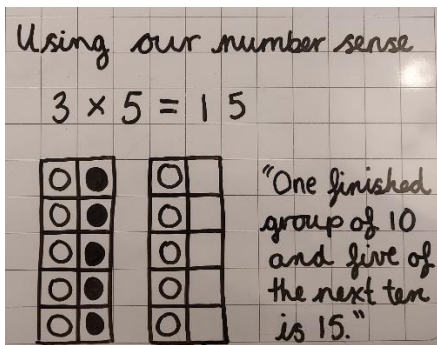 Using our number sense
3 × 5 = 15
"One finished
group of 10
and five of
the next ten
is 15."